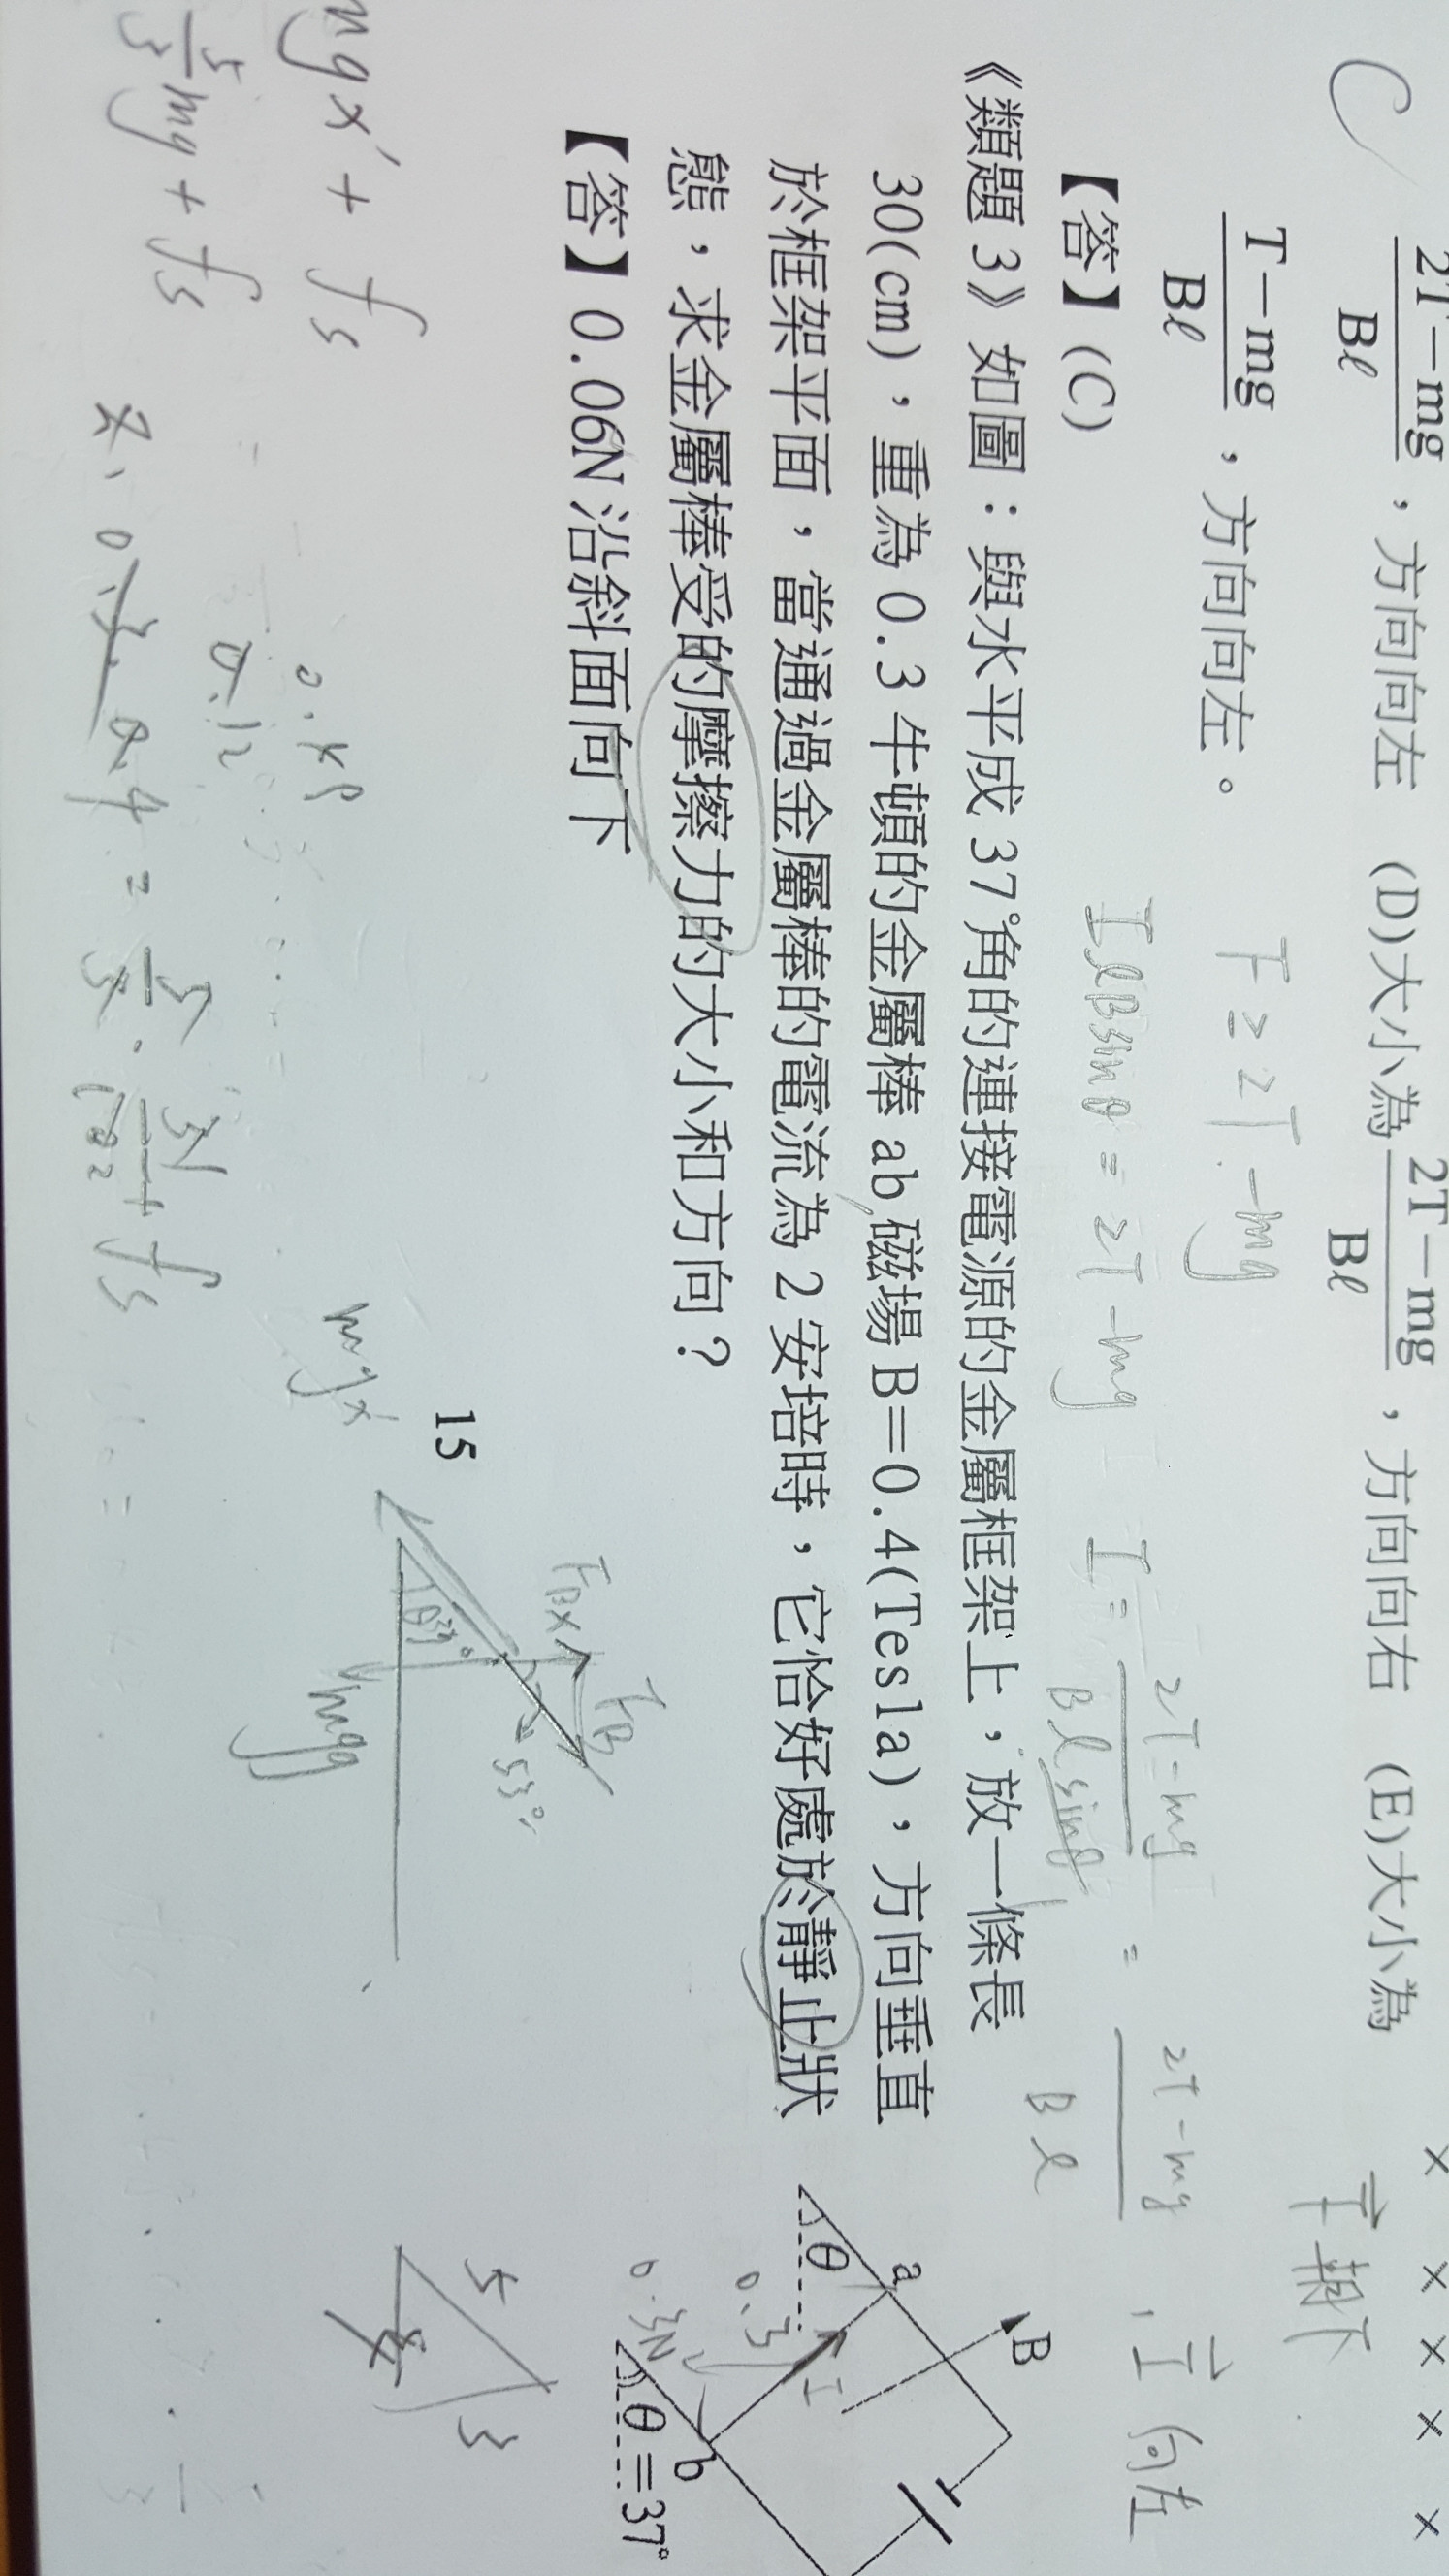 C
2T－mg
Bℓ
，方向向左 (D)大小為
2T－mg
Bℓ
，方向向右 (E)大小為
T－mg
Bℓ
，方向向左。
F = 2T - mg
F 朝下
【答】(C)
IℓB sinθ = 2T - mg
I = 2T - mg
Bℓ sinθ
= 2T - mg
Bℓ
, I 向左
《類題 3》如圖：與水平成 37°角的連接電源的金屬框架上，放一條長
30(cm)，重為 0.3 牛頓的金屬棒 ab，磁場 B=0.4(Tesla)，方向垂直
於框架平面，當通過金屬棒的電流為 2 安培時，它恰好處於靜止狀
態，求金屬棒受的摩擦力的大小和方向？
【答】0.06N 沿斜面向下
B
a
I
b
θ
θ=37°
0.3
0.3N
15
F_B
F_Bx
53°
θ37°
mg
mgx
mgx' + fs
3
5
mg + fs
0.18
0.12
2、0.3、0.4 =
5
4
3
× × × ×